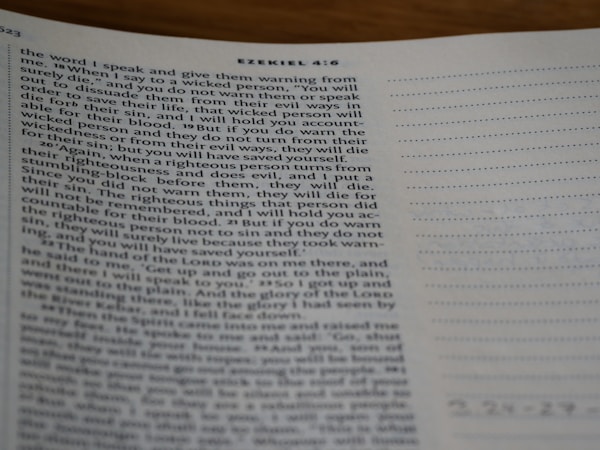 523
EZEKIEL 4:6
the word I speak and give them warning from
me. 18 When I say to a wicked person, "You will
surely die," and you do not warn them or speak
out to dissuade them from their evil ways in
order to save their life, that wicked person will
die for b their sin, and I will hold you account-
able for their blood. 19 But if you do warn the
wicked person and they do not turn from their
wickedness or from their evil ways, they will die
for their sin; but you will have saved yourself.
20 'Again, when a righteous person turns from
their righteousness and does evil, and I put a
stumbling-block before them, they will die.
Since you did not warn them, they will die for
their sin. The righteous things that person did
will not be remembered, and I will hold you ac-
countable for their blood. 21 But if you do warn
the righteous person not to sin and they do not
sin, they will surely live because they took warn-
ing, and you will have saved yourself.'
22 The hand of the LORD was on me there, and
he said to me, 'Get up and go out to the plain,
and there I will speak to you.' 23 So I got up and
went out to the plain. And the glory of the LORD
was standing there, like the glory I had seen by
the River Kebar, and I fell face down.
24 Then the Spirit came into me and raised me
to my feet. He spoke to me and said: 'Go, shut
yourself inside your house. 25 And you, son of
man, they will tie with ropes; you will be bound
so that you cannot go out among the people. 26 I
will make your tongue stick to the roof of your
mouth so that you will be silent and unable to
rebuke them, for they are a rebellious people.
27 But when I speak to you, I will open your
mouth and you shall say to them, "This is what
the Sovereign LORD says." Whoever will listen
3.24-27 -